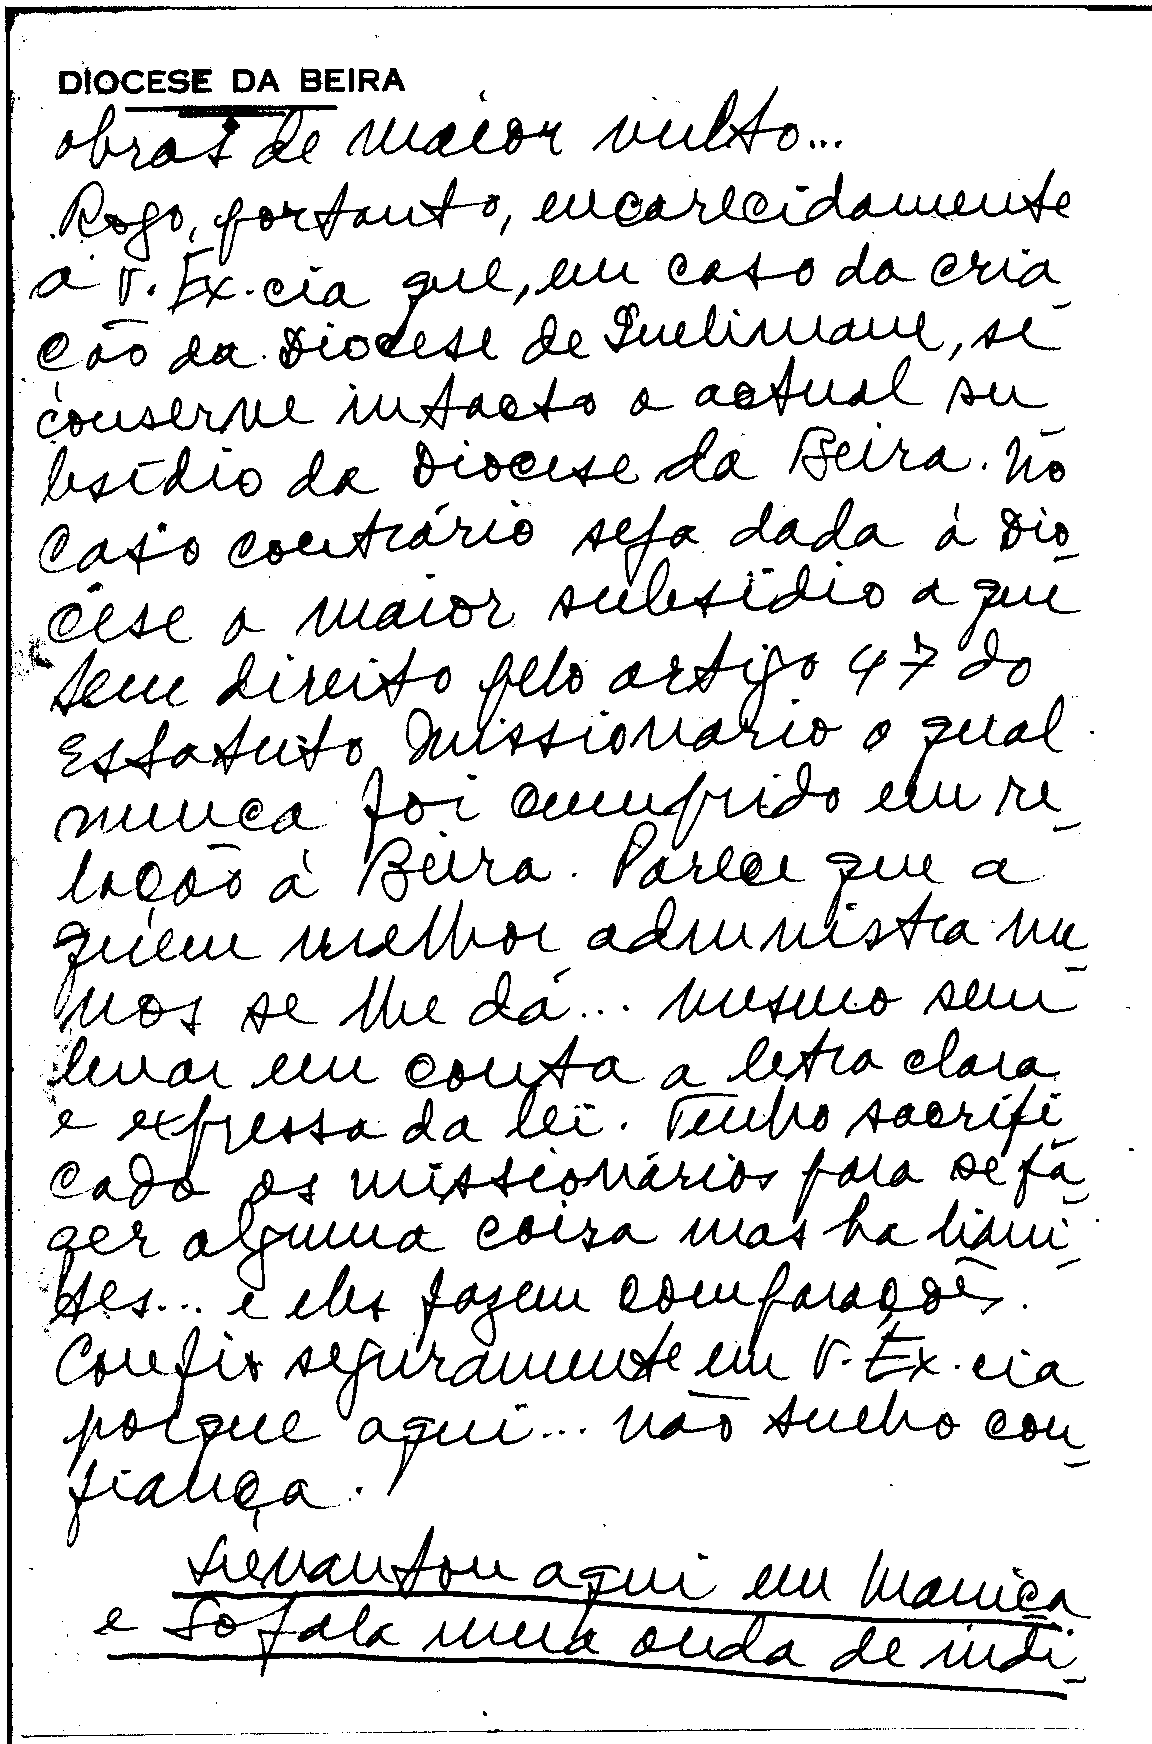 DIOCESE DA BEIRA
obras de maior vulto...
Rogo, portanto, encarecidamente
a V. Ex.cia que, em caso da cria
ção da Diocese de Quelimane, se
conserve intacto o actual su
bsídio da Diocese da Beira. No
caso contrário seja dada à Dio
cese o maior subsídio a que
tem direito pelo artigo 47 do
Estatuto Missionário o qual
nunca foi cumprido em re
lação à Beira. Parece que a
quem melhor administra me
nos se lhe dá... mesmo sem
levar em conta a letra clara
e expressa da lei. Tenho sacrifi
cado os missionários para se fa
zer alguma coisa mas ha limi
tes... e eles fazem comparações.
Confio seguramente em V. Ex.cia
porque aqui... não tenho con
fiança.
Levantou aqui em Manica
e Sofala uma onda de indi